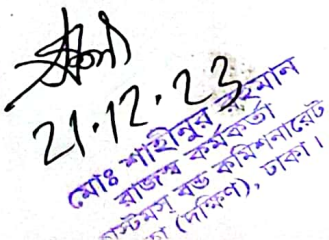 21.12.23
মোঃ শাহীনুর রহমান
রাজস্ব কর্মকর্তা
কাস্টমস বন্ড কমিশনারেট
(দক্ষিণ), ঢাকা।